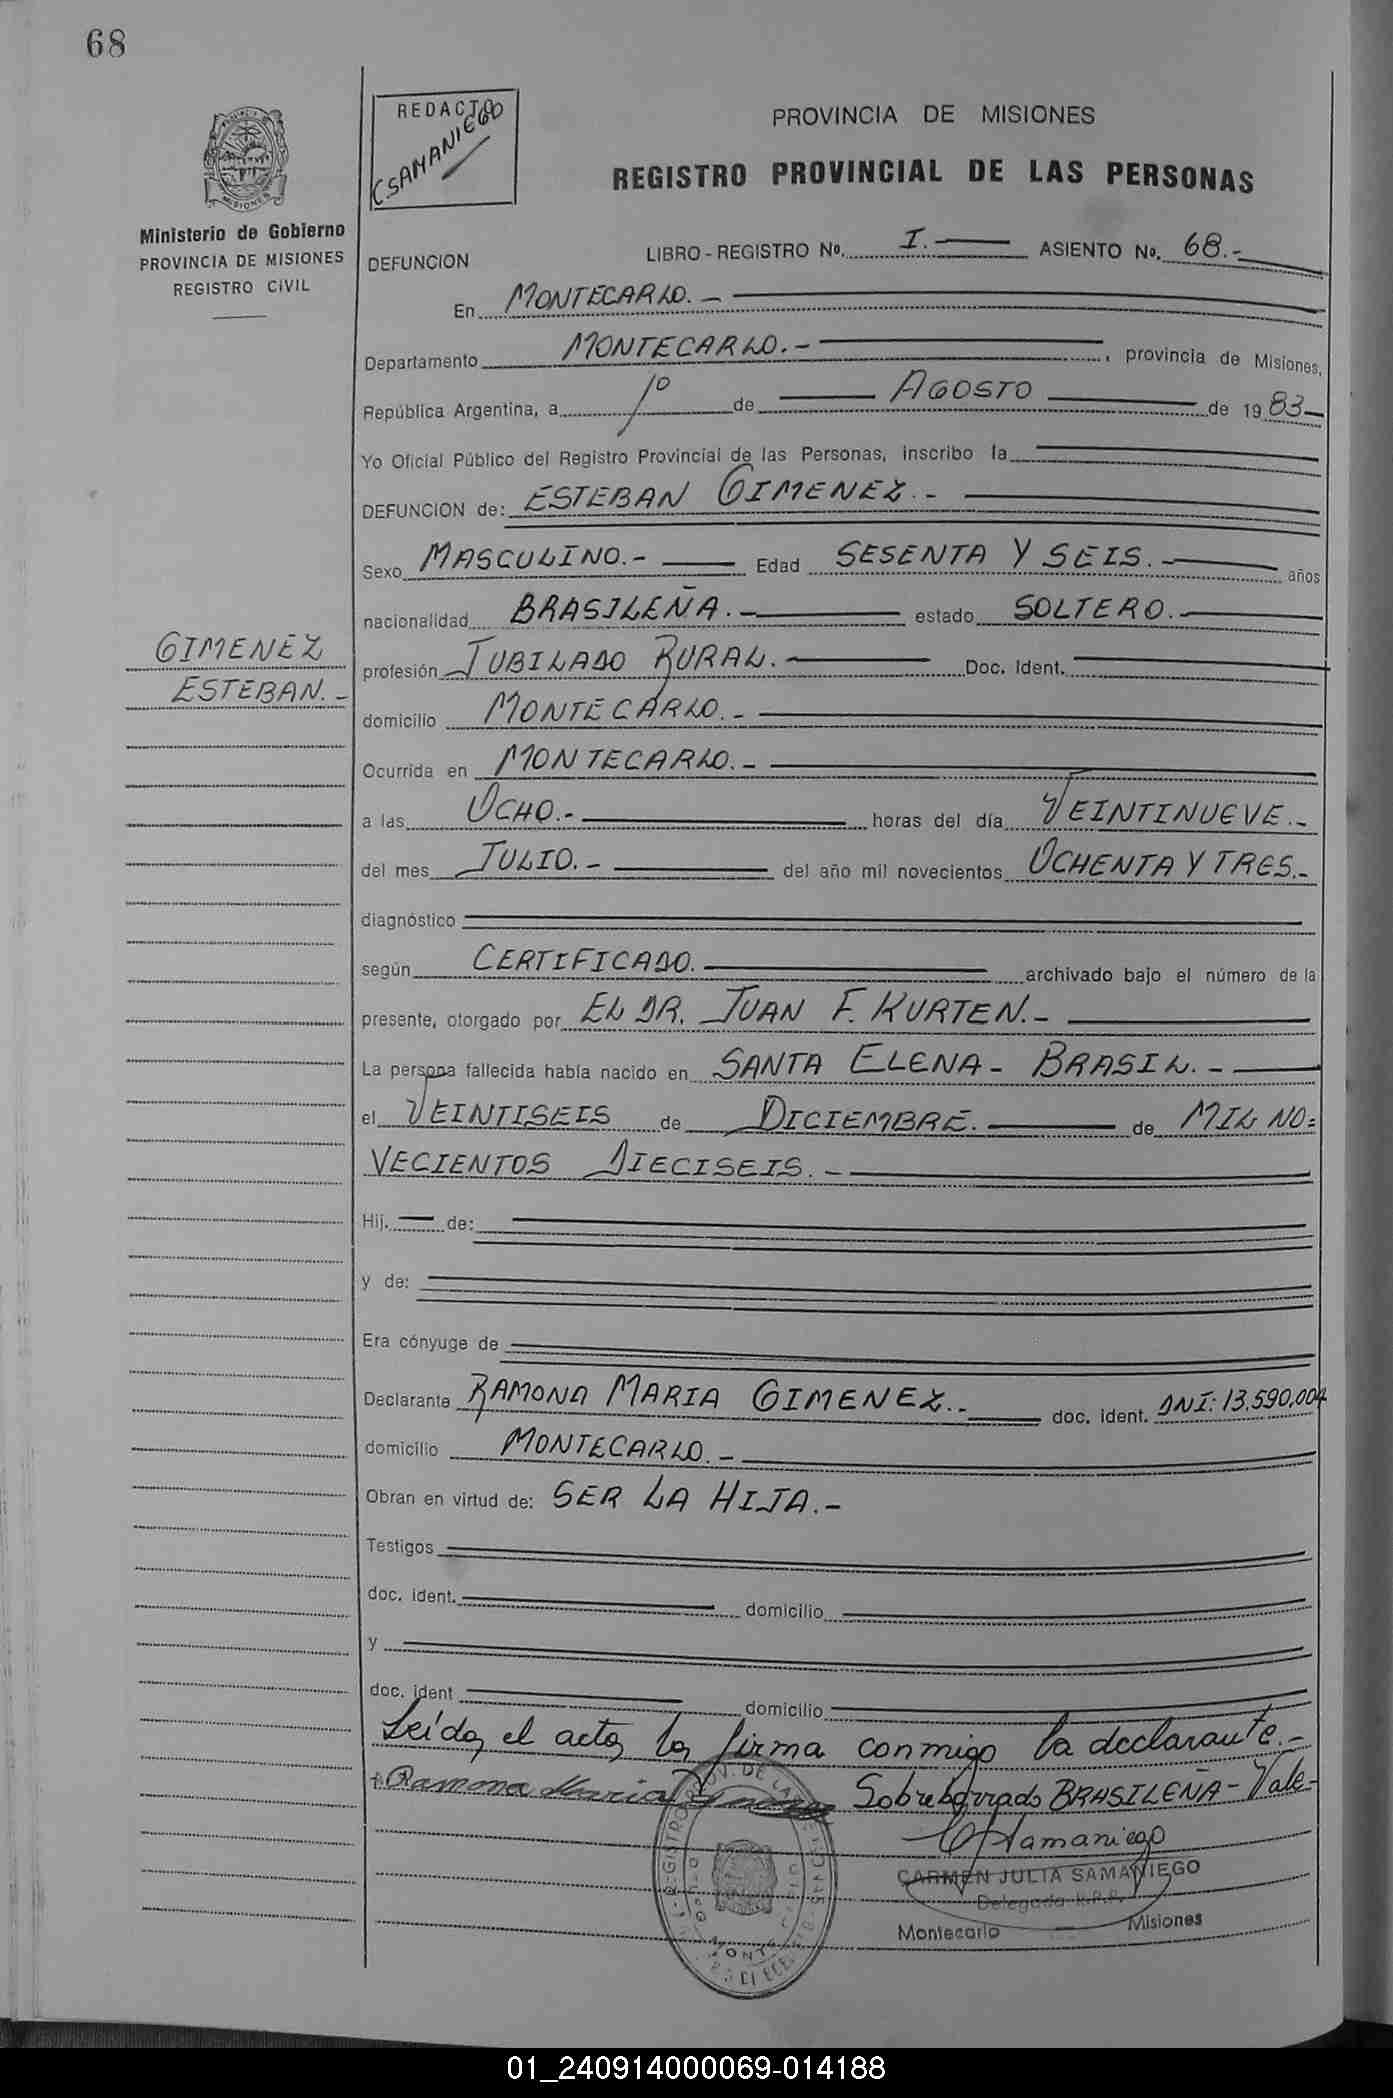 68
REDACTO
CSAMANIEGO
PROVINCIA DE MISIONES
REGISTRO PROVINCIAL DE LAS PERSONAS
MISIONES
Ministerio de Gobierno
PROVINCIA DE MISIONES
REGISTRO CIVIL
DEFUNCION LIBRO - REGISTRO No. I.- ASIENTO No. 68.-
En MONTECARLO.-
Departamento MONTECARLO.- , provincia de Misiones,
República Argentina, a 1º de AGOSTO de 1983
Yo Oficial Público del Registro Provincial de las Personas, inscribo la
DEFUNCION de: ESTEBAN GIMENEZ.-
Sexo MASCULINO.- Edad SESENTA Y SEIS.- años
nacionalidad BRASILEÑA.- estado SOLTERO.-
GIMENEZ
ESTEBAN.-
profesión JUBILADO RURAL.- Doc. Ident.
domicilio MONTECARLO.-
Ocurrida en MONTECARLO.-
a las OCHO.- horas del día VEINTINUEVE.-
del mes JULIO.- del año mil novecientos OCHENTA Y TRES.-
diagnóstico
según CERTIFICADO. archivado bajo el número de la
presente, otorgado por EL DR. JUAN F. KURTEN.-
La persona fallecida había nacido en SANTA ELENA - BRASIL.-
el VEINTISEIS de DICIEMBRE. de MIL NO=
VECIENTOS DIECISEIS.-
Hij. de:
y de:
Era cónyuge de
Declarante RAMONA MARIA GIMENEZ.- doc. ident. DNI: 13.590.004
domicilio MONTECARLO.-
Obran en virtud de: SER LA HIJA.-
Testigos
doc. ident. domicilio
y
doc. ident domicilio
Leída el acta, la firma conmigo la declarante.-
Ramona Maria Sobreborrado BRASILEÑA - Vale-
CSamaniego
CARMEN JULIA SAMANIEGO
Delegada R.P.P.
Montecarlo Misiones
01_240914000069-014188